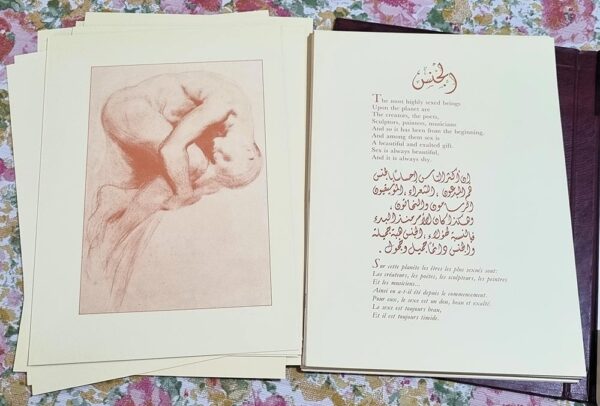 الجنس
The most highly sexed beings
Upon the planet are
The creators, the poets,
Sculptors, painters, musicians
And so it has been from the beginning.
And among them sex is
A beautiful and exalted gift.
Sex is always beautiful,
And it is always shy.
ان أكثر الناس احساسًا بالجنس
هم المبدعون، الشعراء، الموسيقيون
الرسامون والنحاتون.
وهكذا كان الأمر منذ البدء
فالنسبة لهؤلاء، الجنس هبة جميلة
والجنس دائمًا جميل وخجول.
Sur cette planète les êtres les plus sexués sont:
Les créateurs, les poètes, les sculpteurs, les peintres
Et les musiciens...
Ainsi en a-t-il été depuis le commencement.
Pour eux, le sexe est un don, beau et exalté.
Le sexe est toujours beau,
Et il est toujours timide.